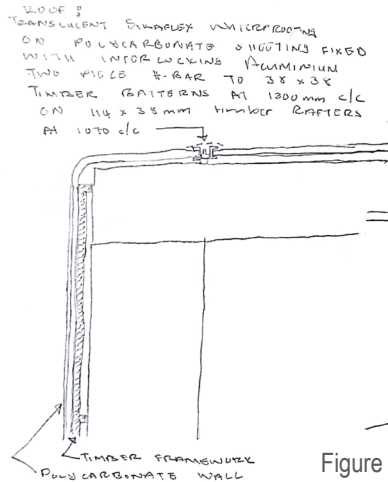 ROOF :
TRANSLUCENT SIKAFLEX WATERPROOFING
ON POLYCARBONATE SHEETING FIXED
WITH INTERLOCKING ALUMINIUM
TWO PIECE H-BAR TO 38 x 38
TIMBER BATTERNS AT 1200mm c/c
ON 114 x 38mm timber RAFTERS
AT 1070 c/c
TIMBER FRAMEWORK
POLYCARBONATE WALL
Figure